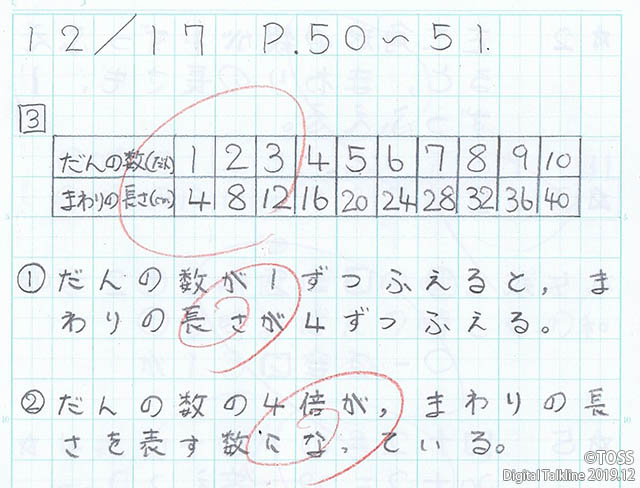 12/17 P.50〜51.
3
だんの数(だん) 1 2 3 4 5 6 7 8 9 10
まわりの長さ(cm) 4 8 12 16 20 24 28 32 36 40
① だんの数が1ずつふえると,ま
わりの長さが4ずつふえる。
② だんの数の4倍が,まわりの長
さを表す数になっている。
©TOSS
Digital Talkline 2019.12